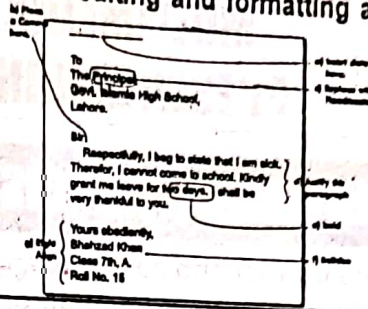 ting and formatting a
b) Place
a Comma
here.
a) Insert date
here.
To
The Principal
Govt. Islamia High School,
Lahore.
Sir
Respectfully, I beg to state that I am sick.
Therefor, I cannot come to school. Kindly
grant me leave for two days. shall be
very thankful to you.
Yours obediently,
Behzad Khan
Class 7th, A.
Roll No. 15
c) Replace with
d) Justify this
paragraph
e) bold
f) Italicize
g) Right
Align